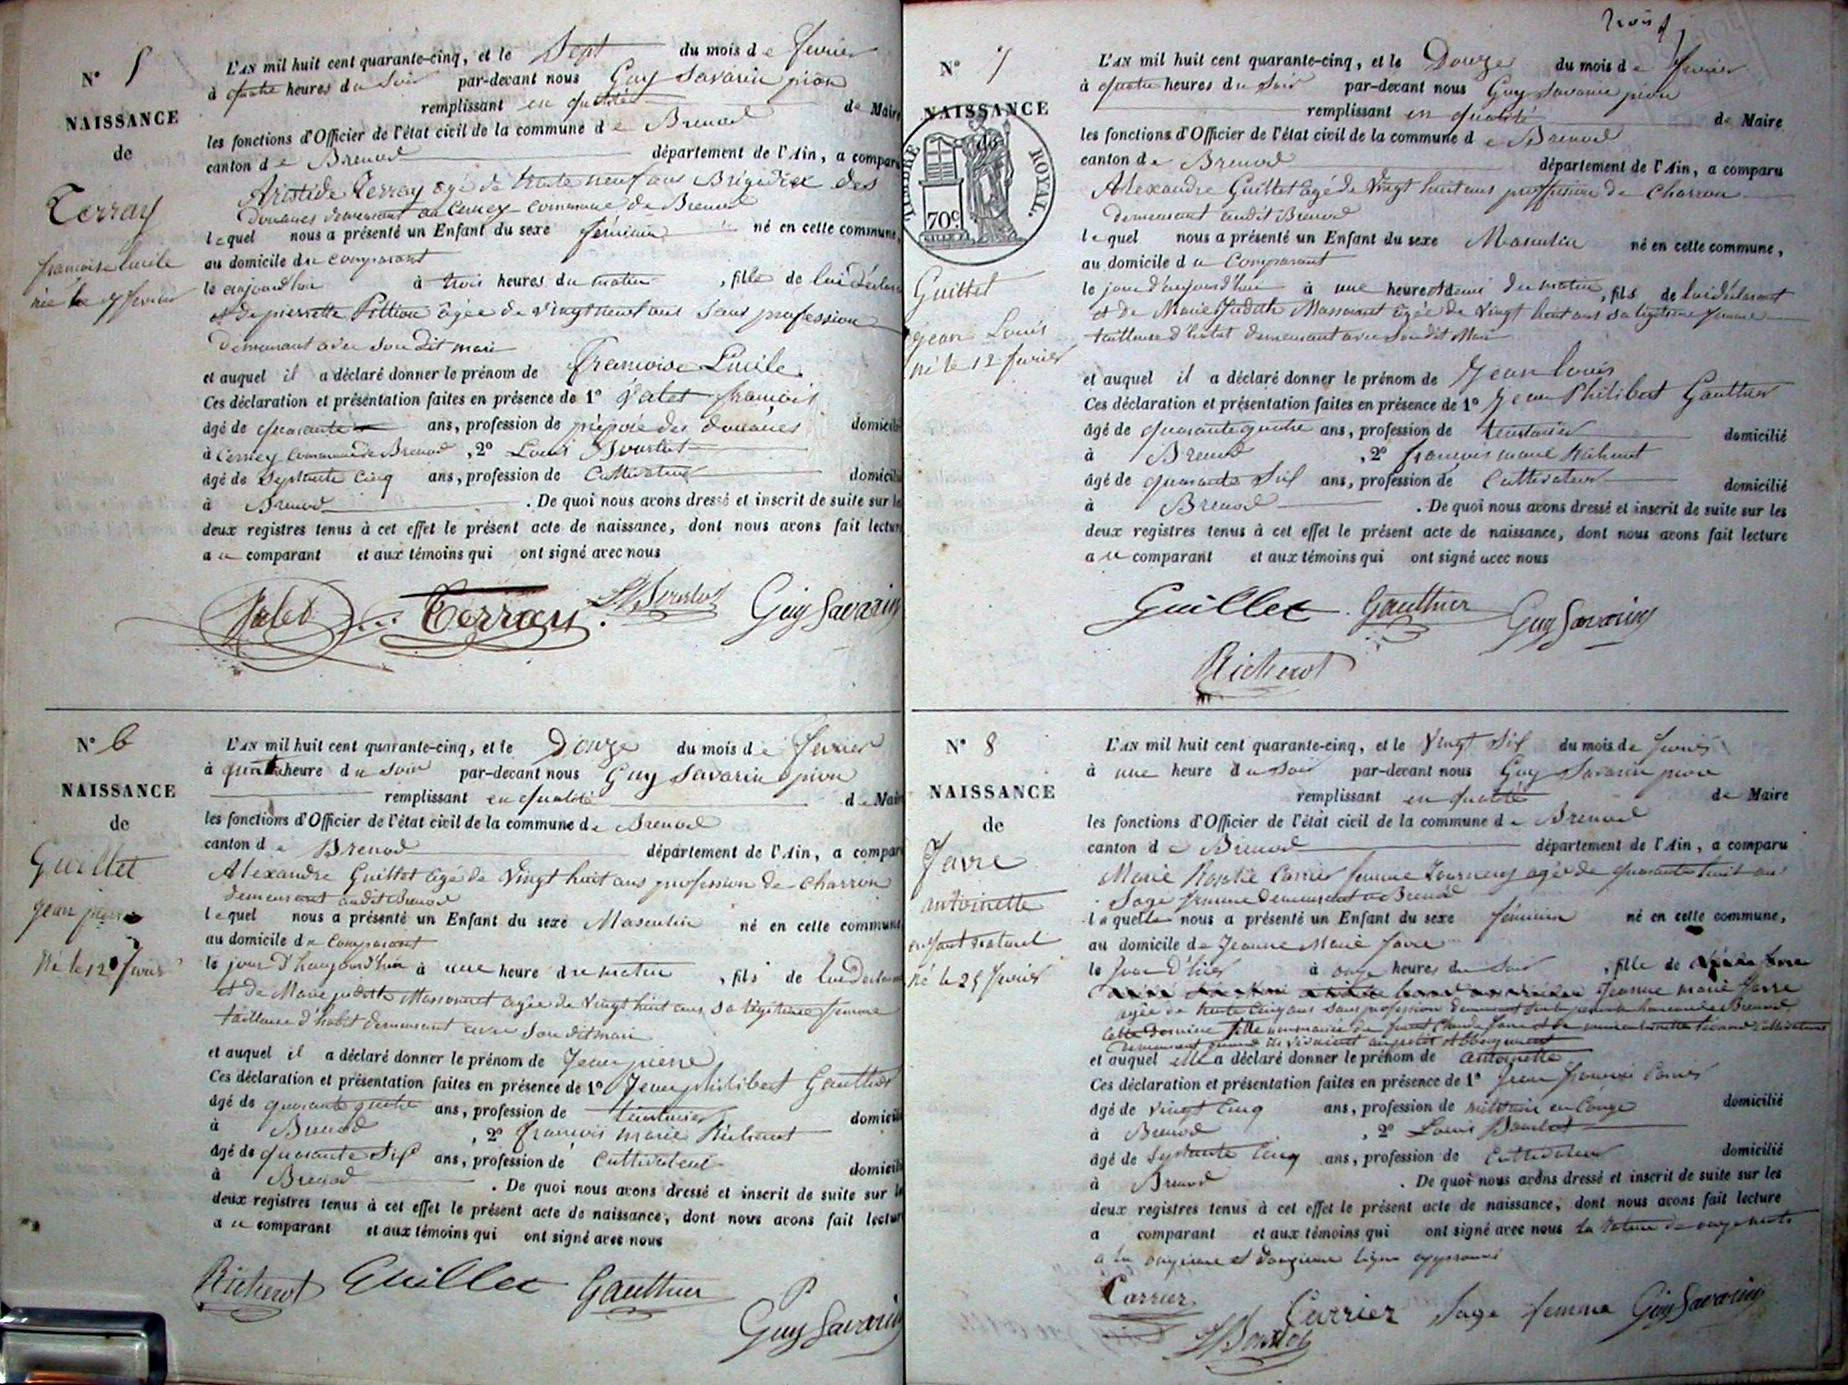 N° 5
NAISSANCE
de
Terray
françoise lucile
née le 7 fevrier
L'AN mil huit cent quarante-cinq, et le Sept du mois de fevrier
à quatre heures du soir par-devant nous Guy Savarin pion
remplissant en qualité de Maire
les fonctions d'Officier de l'état civil de la commune de Brenod
canton de Brenod département de l'Ain, a comparu
Aristide Terray agé de trente neuf ans Brigidier des
Douanes demeurant au Cerney commune de Brenod
lequel nous a présenté un Enfant du sexe féminin né en cette commune,
au domicile du comparant
le aujourd'hui à trois heures du matin, fille de lui déclarant
et de pierrette Pittion agée de vingt neuf ans sans profession
demeurant avec son dit mari
et auquel il a déclaré donner le prénom de françoise Lucile
Ces déclaration et présentation faites en présence de 1° Valet françois
âgé de quarante ans, profession de préposé des douanes domicilié
à Cerney commune de Brenod, 2° Louis Bourlot
âgé de Septante cinq ans, profession de Cultivateur domicilié
à Brenod. De quoi nous avons dressé et inscrit de suite sur les
deux registres tenus à cet effet le présent acte de naissance, dont nous avons fait lecture
au comparant et aux témoins qui ont signé avec nous
Valet Terray L Bourlot Guy Savarin
N° 6
NAISSANCE
de
Guillet
jean pierre
Né le 12 fevrier
L'AN mil huit cent quarante-cinq, et le Douze du mois de fevrier
à quatre heure du soir par-devant nous Guy Savarin pion
remplissant en qualité de Maire
les fonctions d'Officier de l'état civil de la commune de Brenod
canton de Brenod département de l'Ain, a comparu
Alexandre Guillet agé de vingt huit ans profession de charron
demeurant audit Brenod
lequel nous a présenté un Enfant du sexe Masculin né en cette commune
au domicile du comparant
le jour d'haujourd'hui à une heure du matin, fils de lui déclarant
et de Marie judith Massonnet agée de vingt huit ans sa légitime femme
tailleuse d'habit demeurant avec son dit mari
et auquel il a déclaré donner le prénom de Jean pierre
Ces déclaration et présentation faites en présence de 1° Jean philibert Gauthier
âgé de quarante quatre ans, profession de teinturier domicilié
à Brenod, 2° françois marie Richerot
âgé de quarante six ans, profession de Cultivateur domicilié
à Brenod. De quoi nous avons dressé et inscrit de suite sur les
deux registres tenus à cet effet le présent acte de naissance, dont nous avons fait lecture
au comparant et aux témoins qui ont signé avec nous
Richerot Guillet Gauthier Guy Savarin
trois
N° 7
NAISSANCE
de
TIMBRE ROYAL.
70c.
Guillet
jean Louis
né le 12 fevrier
L'AN mil huit cent quarante-cinq, et le Douze du mois de fevrier
à quatre heures du soir par-devant nous Guy Savarin pion
remplissant en qualité de Maire
les fonctions d'Officier de l'état civil de la commune de Brenod
canton de Brenod département de l'Ain, a comparu
Alexandre Guillet agé de vingt huit ans proffession de charron
demeurant audit Brenod
lequel nous a présenté un Enfant du sexe Masculin né en cette commune,
au domicile du Comparant
le jour d'aujourd'hui à une heure et demi du matin, fils de lui déclarant
et de Marie Judith Massonnet agée de vingt huit ans sa légitime femme
tailleuse d'habit demeurant avec son dit Mari
et auquel il a déclaré donner le prénom de Jean louis
Ces déclaration et présentation faites en présence de 1° Jean Philibert Gauthier
âgé de quarante quatre ans, profession de teinturier domicilié
à Brenod, 2° françois marie Richerot
âgé de quarante six ans, profession de Cultivateur domicilié
à Brenod. De quoi nous avons dressé et inscrit de suite sur les
deux registres tenus à cet effet le présent acte de naissance, dont nous avons fait lecture
au comparant et aux témoins qui ont signé avec nous
Guillet Gauthier Guy Savarin
Richerot
N° 8
NAISSANCE
de
favre
antoinette
enfant naturel
Né le 25 fevrier
L'AN mil huit cent quarante-cinq, et le vingt six du mois de fevrier
à une heure du soir par-devant nous Guy Savarin pion
remplissant en qualité de Maire
les fonctions d'Officier de l'état civil de la commune de Brenod
canton de Brenod département de l'Ain, a comparu
Marie Carrier femme agée de quarante huit ans
Sage femme demeurant a Brenod
laquelle nous a présenté un Enfant du sexe féminin né en cette commune,
au domicile de Jeanne Marie favre
le jour d'hier à onze heures du soir, fille de
Jeanne marie favre
agée de trente cinq ans sans profession
et auquel elle a déclaré donner le prénom de antoinette
Ces déclaration et présentation faites en présence de 1° Jean françois Carrier
âgé de vingt cinq ans, profession de militaire en congé domicilié
à Brenod, 2° Louis Bourlot
âgé de Septante cinq ans, profession de Cultivateur domicilié
à Brenod. De quoi nous avons dressé et inscrit de suite sur les
deux registres tenus à cet effet le présent acte de naissance, dont nous avons fait lecture
a comparant et aux témoins qui ont signé avec nous la rature de onze mots
a la onzieme et douzieme ligne approuvé
Carrier Carrier Sage femme Guy Savarin
L Bourlot